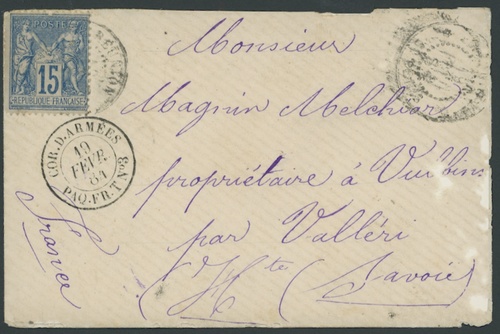 POSTE
15
REPUBLIQUE FRANÇAISE
COR. D. ARMÉES
19
FEVR.
84
PAQ. FR. T. Nº3
Monsieur
Magnin Melchior
propriétaire à
par Valléri
(Hte Savoie)
France